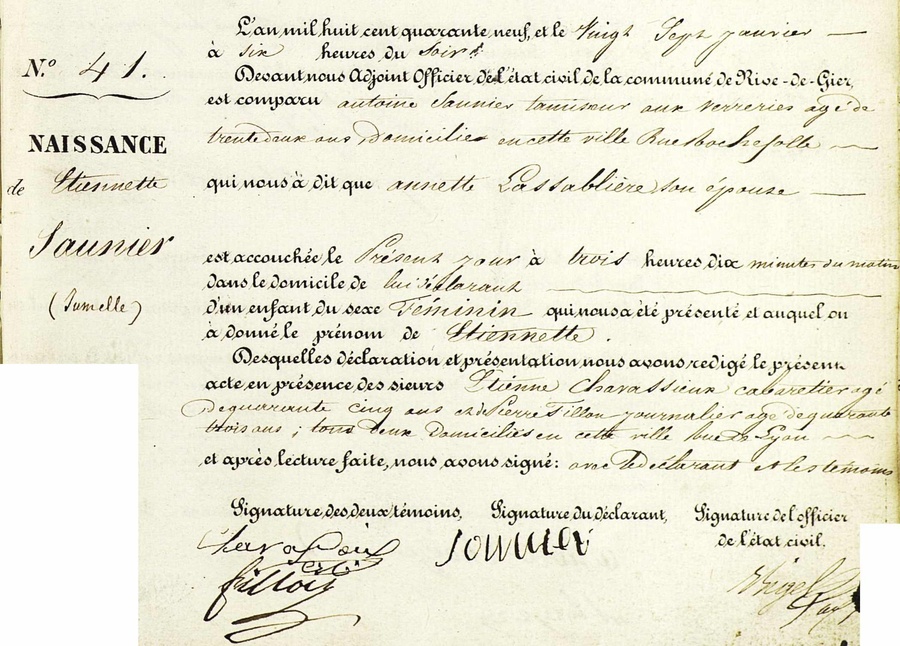 N.o 41.
NAISSANCE
de Etiennette
Saunier
(Jumelle)
L'an mil huit cent quarante neuf, et le Vingt Sept janvier
à six heures du soir
Devant nous Adjoint Officier de l'état civil de la commune de Rive-de-Gier,
est comparu antoine Saunier tamiseur aux verreries agé de
trente deux ans Domicilié en cette ville Rue Rochefolle
qui nous à dit que annette Lassablière son épouse
est accouchée le Présent jour à trois heures dix minutes du matin
dans le domicile de lui déclarant
d'un enfant du sexe Féminin qui nous a été présenté et auquel on
à donné le prénom de Etiennette.
Desquelles déclaration et présentation nous avons redigé le présent
acte en présence des sieurs Etienne Chavassieux cabaretier agé
De quarante cinq ans et de Pierre Fillon journalier agé de quarante
trois ans; tous deux Domiciliés en cette ville rue de Lyon
et après lecture faite, nous avons signé: avec le déclarant et les témoins
Signature des deux témoins, Signature du déclarant, Signature de l'officier
de l'état civil.
fillon